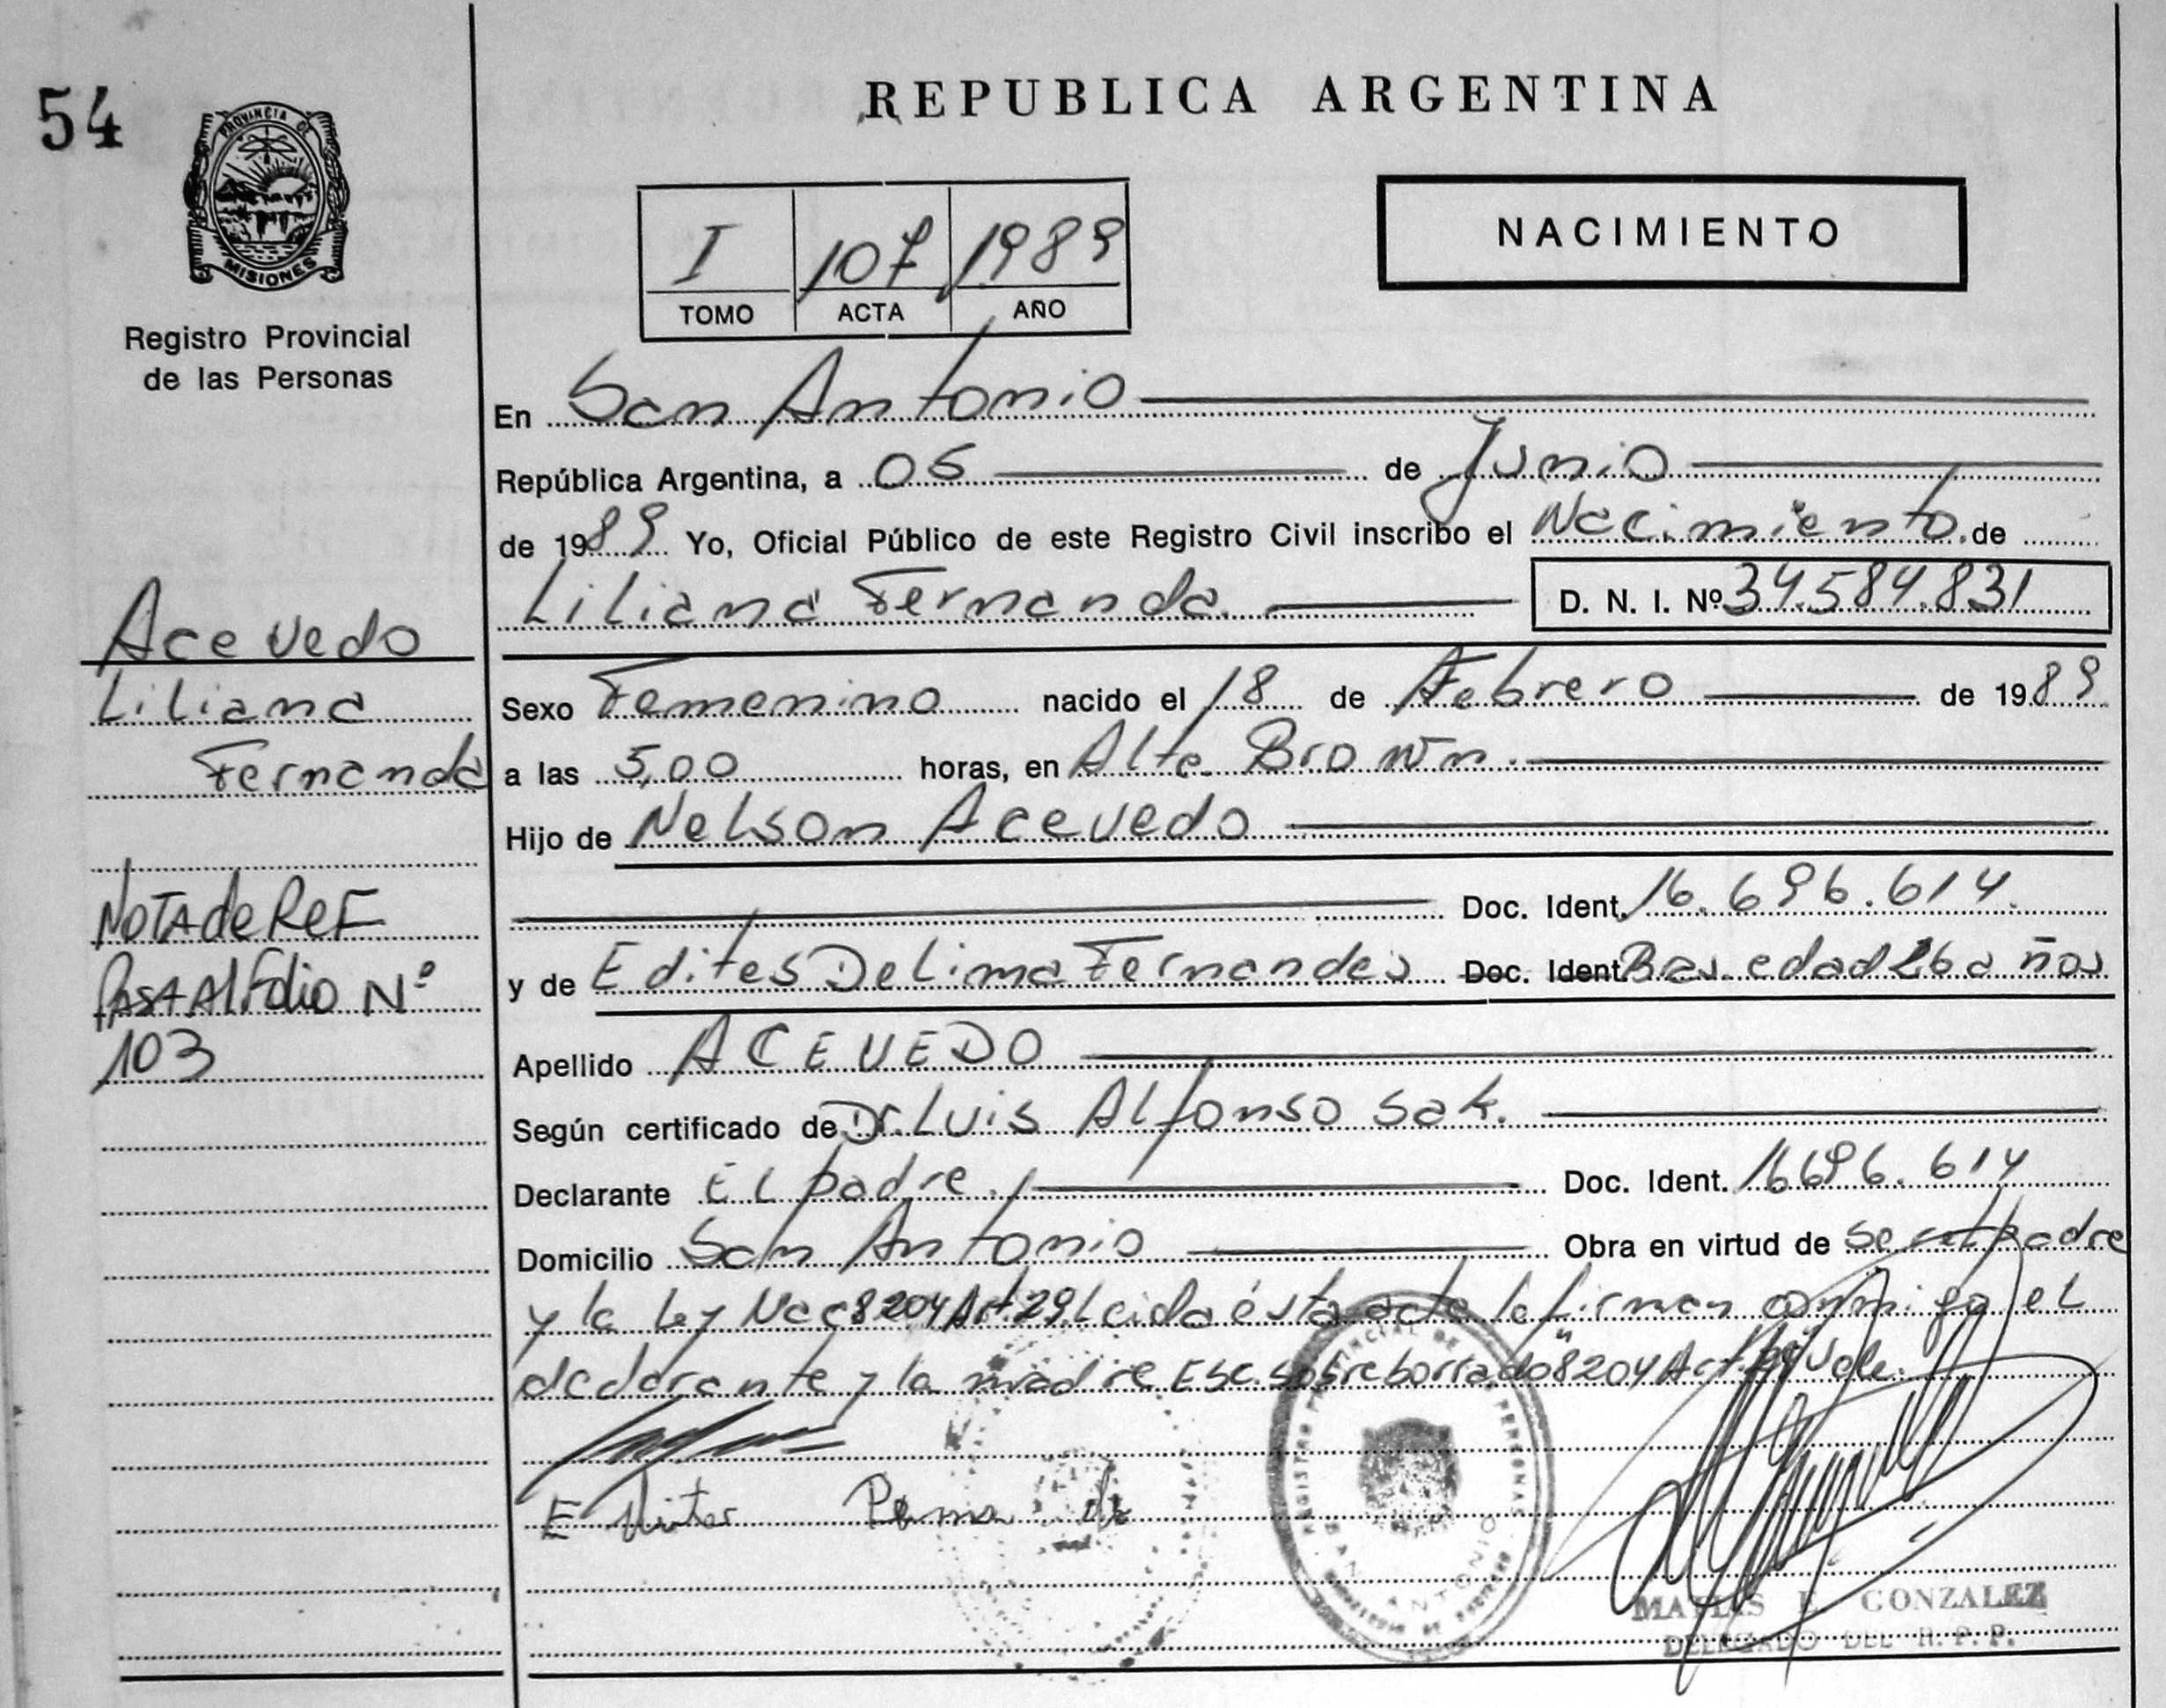 54
PROVINCIA DE
MISIONES
Registro Provincial
de las Personas
REPUBLICA ARGENTINA
I 107 1989
TOMO ACTA AÑO
NACIMIENTO
En San Antonio
República Argentina, a 05 de Junio
de 1989 Yo, Oficial Público de este Registro Civil inscribo el Nacimiento de
Liliana Fernanda. D. N. I. Nº 34.584.831
Acevedo
Liliana
Fernanda
Sexo Femenino nacido el 18 de Febrero de 1989
a las 5,00 horas, en Alte. Brown.
Hijo de Nelson Acevedo
Doc. Ident. 16.696.614.
y de Edites De Lima Fernandes Doc. Ident. Bras. edad 26 años
NOTA de ReF
PASA Al Folio Nº
103
Apellido ACEVEDO
Según certificado de Dr. Luis Alfonso Sak.
Declarante El padre. Doc. Ident. 16696.614
Domicilio San Antonio Obra en virtud de ser el padre
y la Ley Nac 8204 Art. 29. Leida ésta acta la firman conmigo el
declarante y la madre Esc. sobre borrado "8204 Art. 29" Vale.
REGISTRO PROVINCIAL DE LAS PERSONAS
SAN ANTONIO
MATIAS E. GONZALEZ
DELEGADO DEL R. P. P.